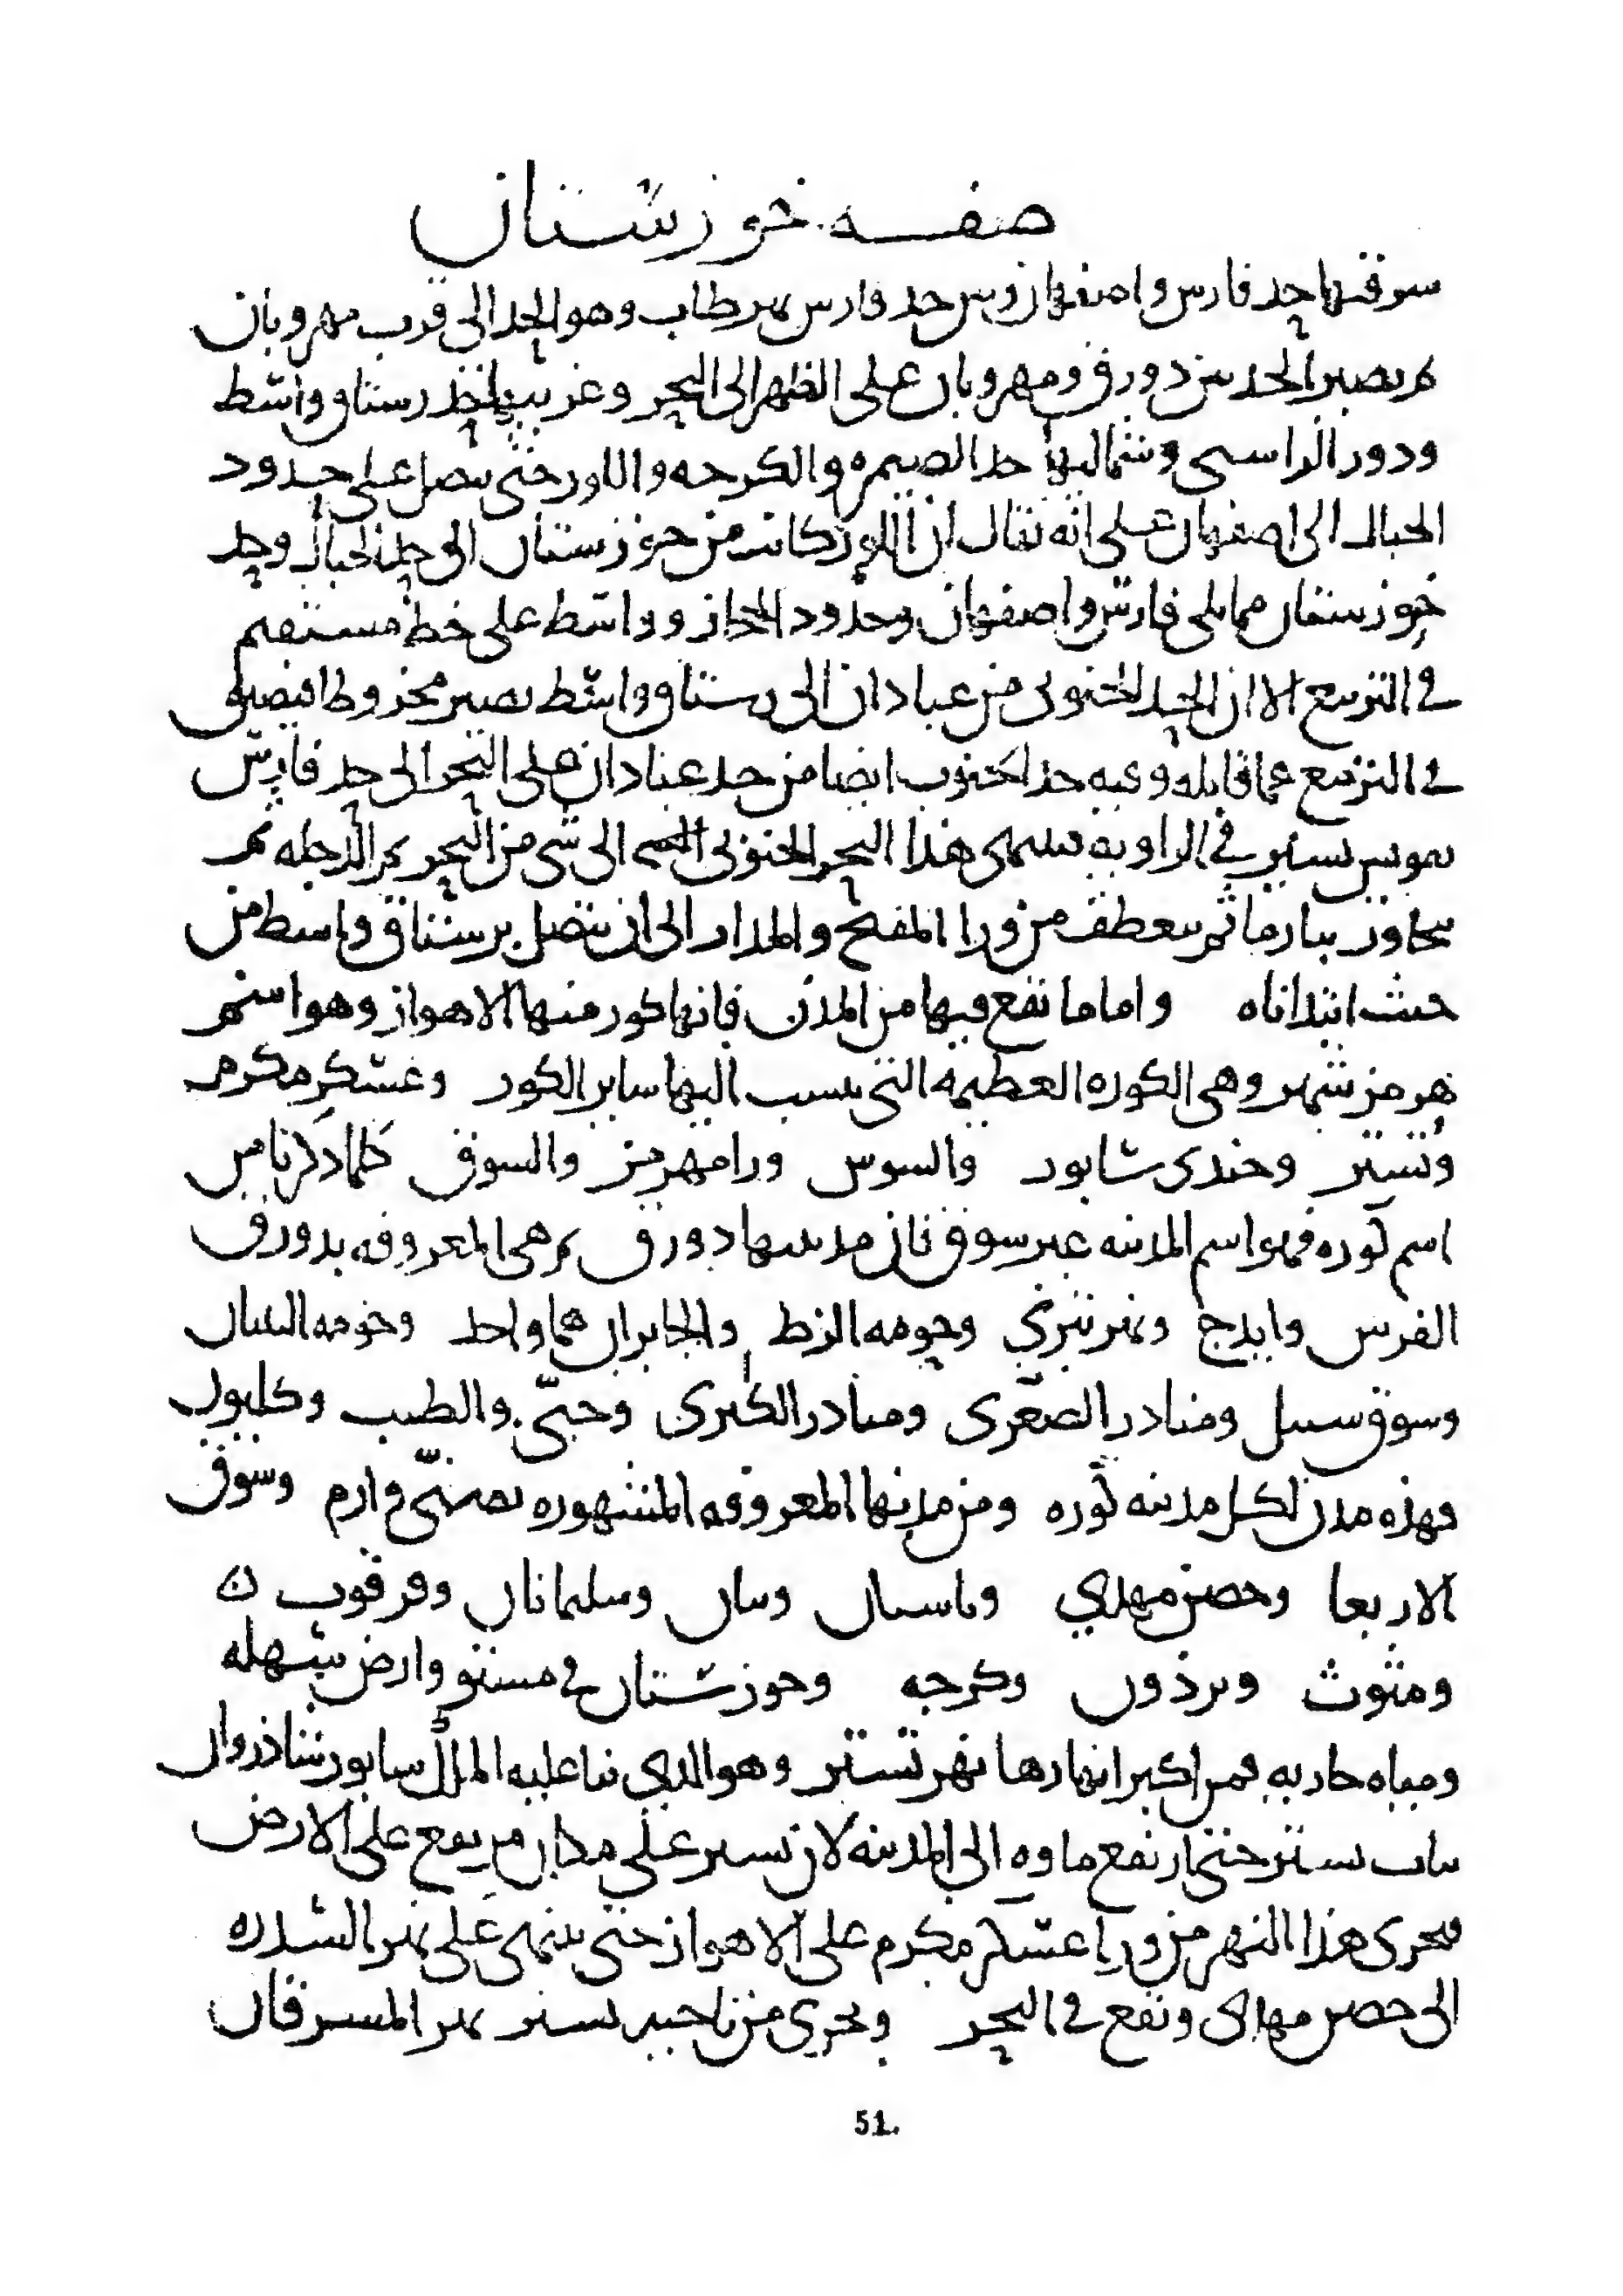 صفه خوزستان
شرقيها حد فارس واصفهان وبين حد فارس نهر طاب وهو الحد الى قرب مهروبان
ثم يصير الحد بين دورق ومهروبان على الظهر الى البحر وغربيها حد رستاق واسط
ودور الراسبي وشماليها حد الصيمره والكرجه واللور حتى يتصل على حدود
الجبال الى اصفهان على انه يقال ان اللور كانت من خوزستان الى حد الجبال وحد
خوزستان مما يلي فارس واصفهان وحدود الجبال وواسط على خط مستقيم
في التربيع الا ان الحد الجنوبي من عبادان الى رستاق واسط يصير مخروطا فيضيق
في التربيع عما قابله وفيه حد الجنوب ايضا من حد عبادان على البحر الى حد فارس
تقويس يسير في الزاويه فينتهي هذا الحد الجنوبي الى شي من البحر ثم الدجله ثم
يجاوز بيان ما ثم ينعطف من ورا المفتح والمدار الى ان يتصل برستاق واسط من
حيث ابتداناه واما ما يقع فيها من المدن فانها كور منها الاهواز وهو اسم
هرمز شهر وهي الكوره العظيمه التي ينسب اليها ساير الكور وعسكر مكرم
وتستر وجندي شابور والسوس ورامهرمز والسوق كلما ذكرنا من
اسم كوره فهو اسم المدينه غير سوق فان مدينتها دورق ثم هي المعروفه بدورق
الفرس وايذج ونهر تيري وحومه الزط والجايزان هما واحد وحومه البنيان
وسوق سنبيل ومناذر الصغرى ومناذر الكبرى وجبى والطيب وكليوان
فهذه مدن لكل مدينه كوره ومن مدنها المعروفه المشهوره بصنى وارم وسوق
الاربعا وحصن مهدي وباسيان وبيان وسليمانان وقرقوب
ومتوث وبرذون وكرجه وخوزستان في مستو وارض سهله
ومياه جاريه فمن اكبر انهارها نهر تستر وهو الذي بنا عليه الملك سابور شاذروان
بباب تستر حتى ارتفع ماوه الى المدينه لان تستر على مكان مرتفع على الارض
فيجري هذا النهر من ورا عسكر مكرم على الاهواز حتى ينتهي على نهر السدره
الى حصن مهدي ويقع في البحر ويجري من ناحيه تستر نهر المسرقان
51.